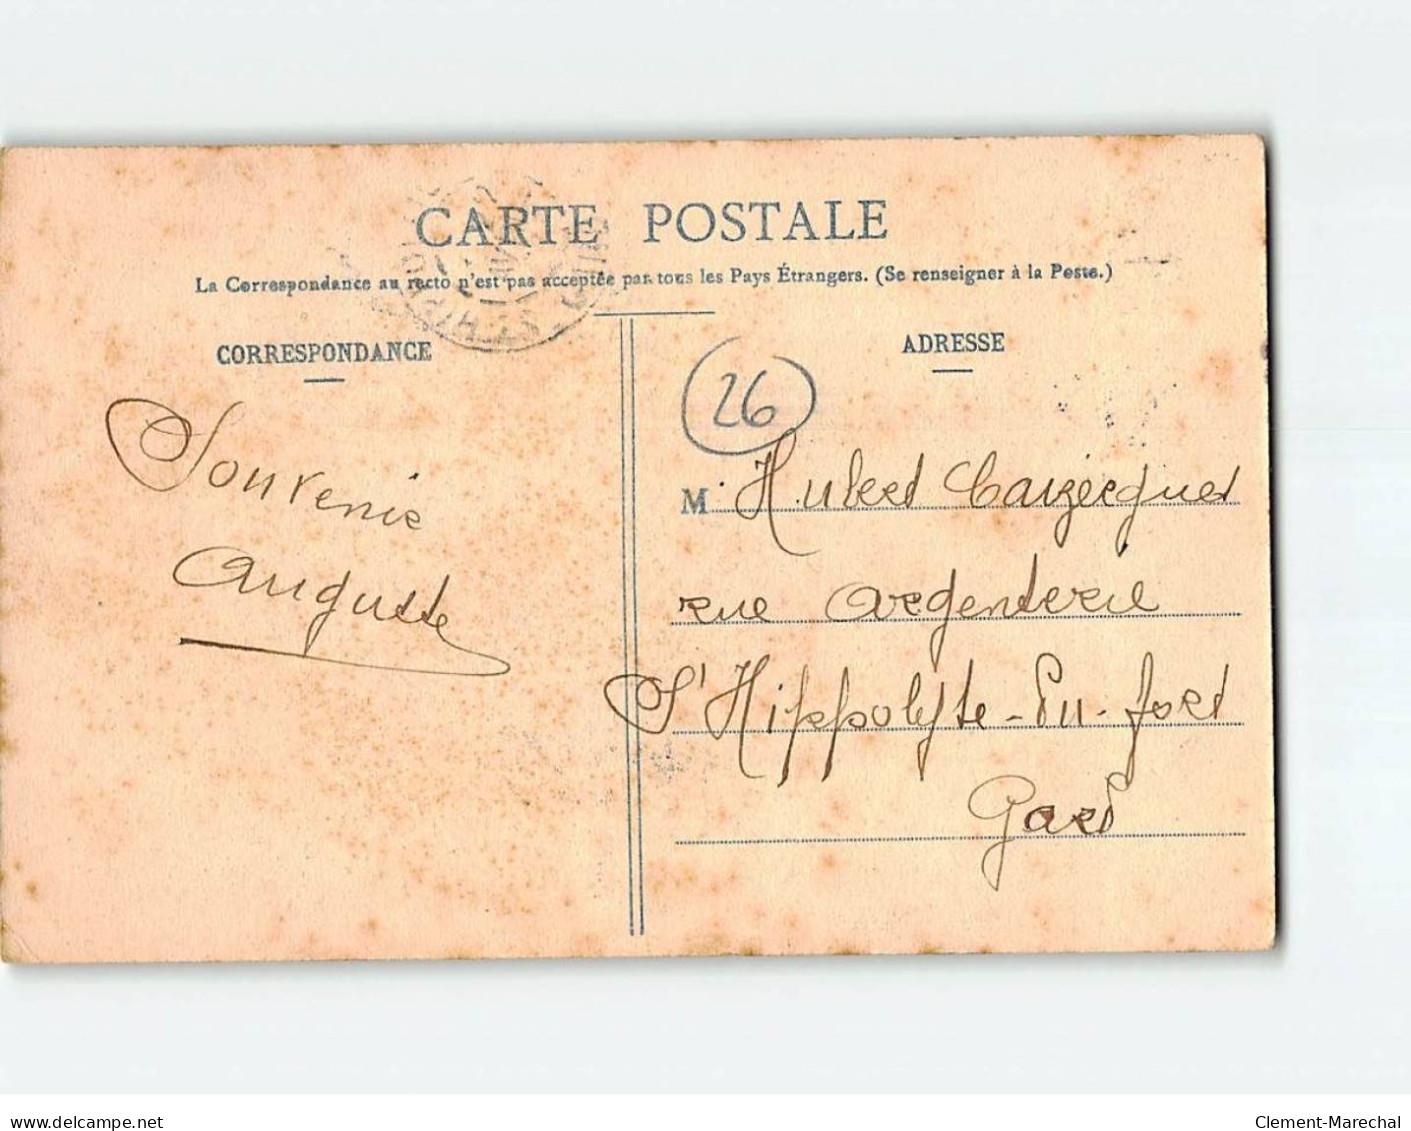 CARTE POSTALE
La Correspondance au recto n'est pas acceptée par tous les Pays Étrangers. (Se renseigner à la Poste.)
CORRESPONDANCE
Souvenir
Auguste
ADRESSE
26
M. Hubert Cauzergues
rue Argenterie
St Hippolyte-du-fort
Gard
www.delcampe.net
Clement-Marechal